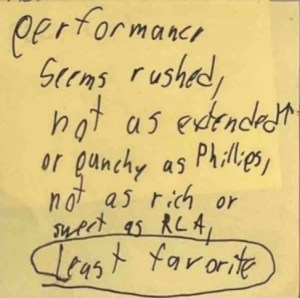 performance
Seems rushed,
not as extended↑
or punchy as Phillips,
not as rich or
sweet as RCA,
Least favorite